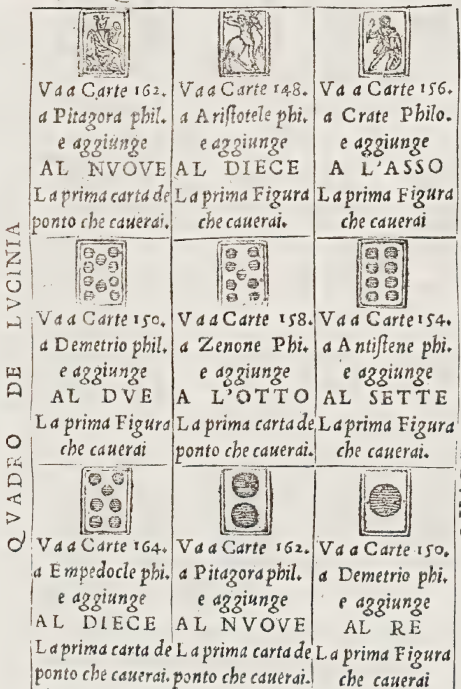 QVADRO DE LVCINIA
Va a Carte 162.
a Pitagora phil.
e aggiunge
AL NVOVE
La prima carta de
ponto che cauerai.
Va a Carte 148.
a Aristotele phi.
e aggiunge
AL DIECE
La prima Figura
che cauerai.
Va a Carte 156.
a Crate Philo.
e aggiunge
A L'ASSO
La prima Figura
che cauerai
Va a Carte 150.
a Demetrio phil.
e aggiunge
AL DVE
La prima Figura
che cauerai
Va a Carte 158.
a Zenone Phi.
e aggiunge
A L'OTTO
La prima carta de
ponto che cauerai.
Va a Carte 154.
a Antistene phi.
e aggiunge
AL SETTE
La prima Figura
che cauerai.
Va a Carte 164.
a Empedocle phi.
e aggiunge
AL DIECE
La prima carta de
ponto che cauerai.
Va a Carte 162.
a Pitagora phil.
e aggiunge
AL NVOVE
La prima carta de
ponto che cauerai.
Va a Carte 150.
a Demetrio phi.
e aggiunge
AL RE
La prima Figura
che cauerai